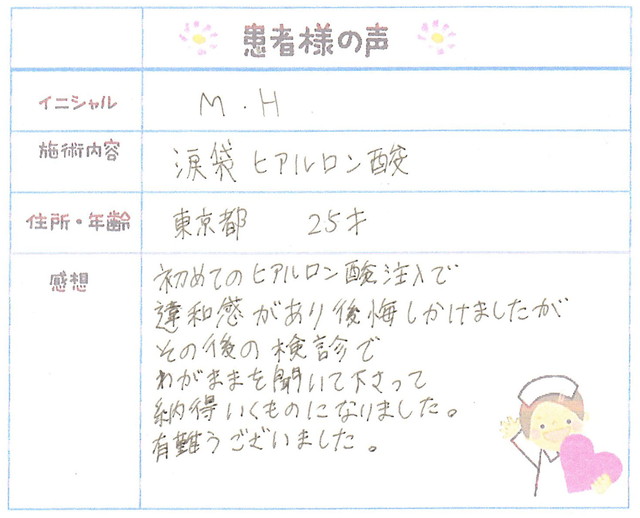 患者様の声
イニシャル M.H
施術内容 涙袋ヒアルロン酸
住所・年齢 東京都 25才
感想 初めてのヒアルロン酸注入で
違和感があり後悔しかけましたが
その後の検診で
わがままを聞いて下さって
納得いくものになりました。
有難うございました。